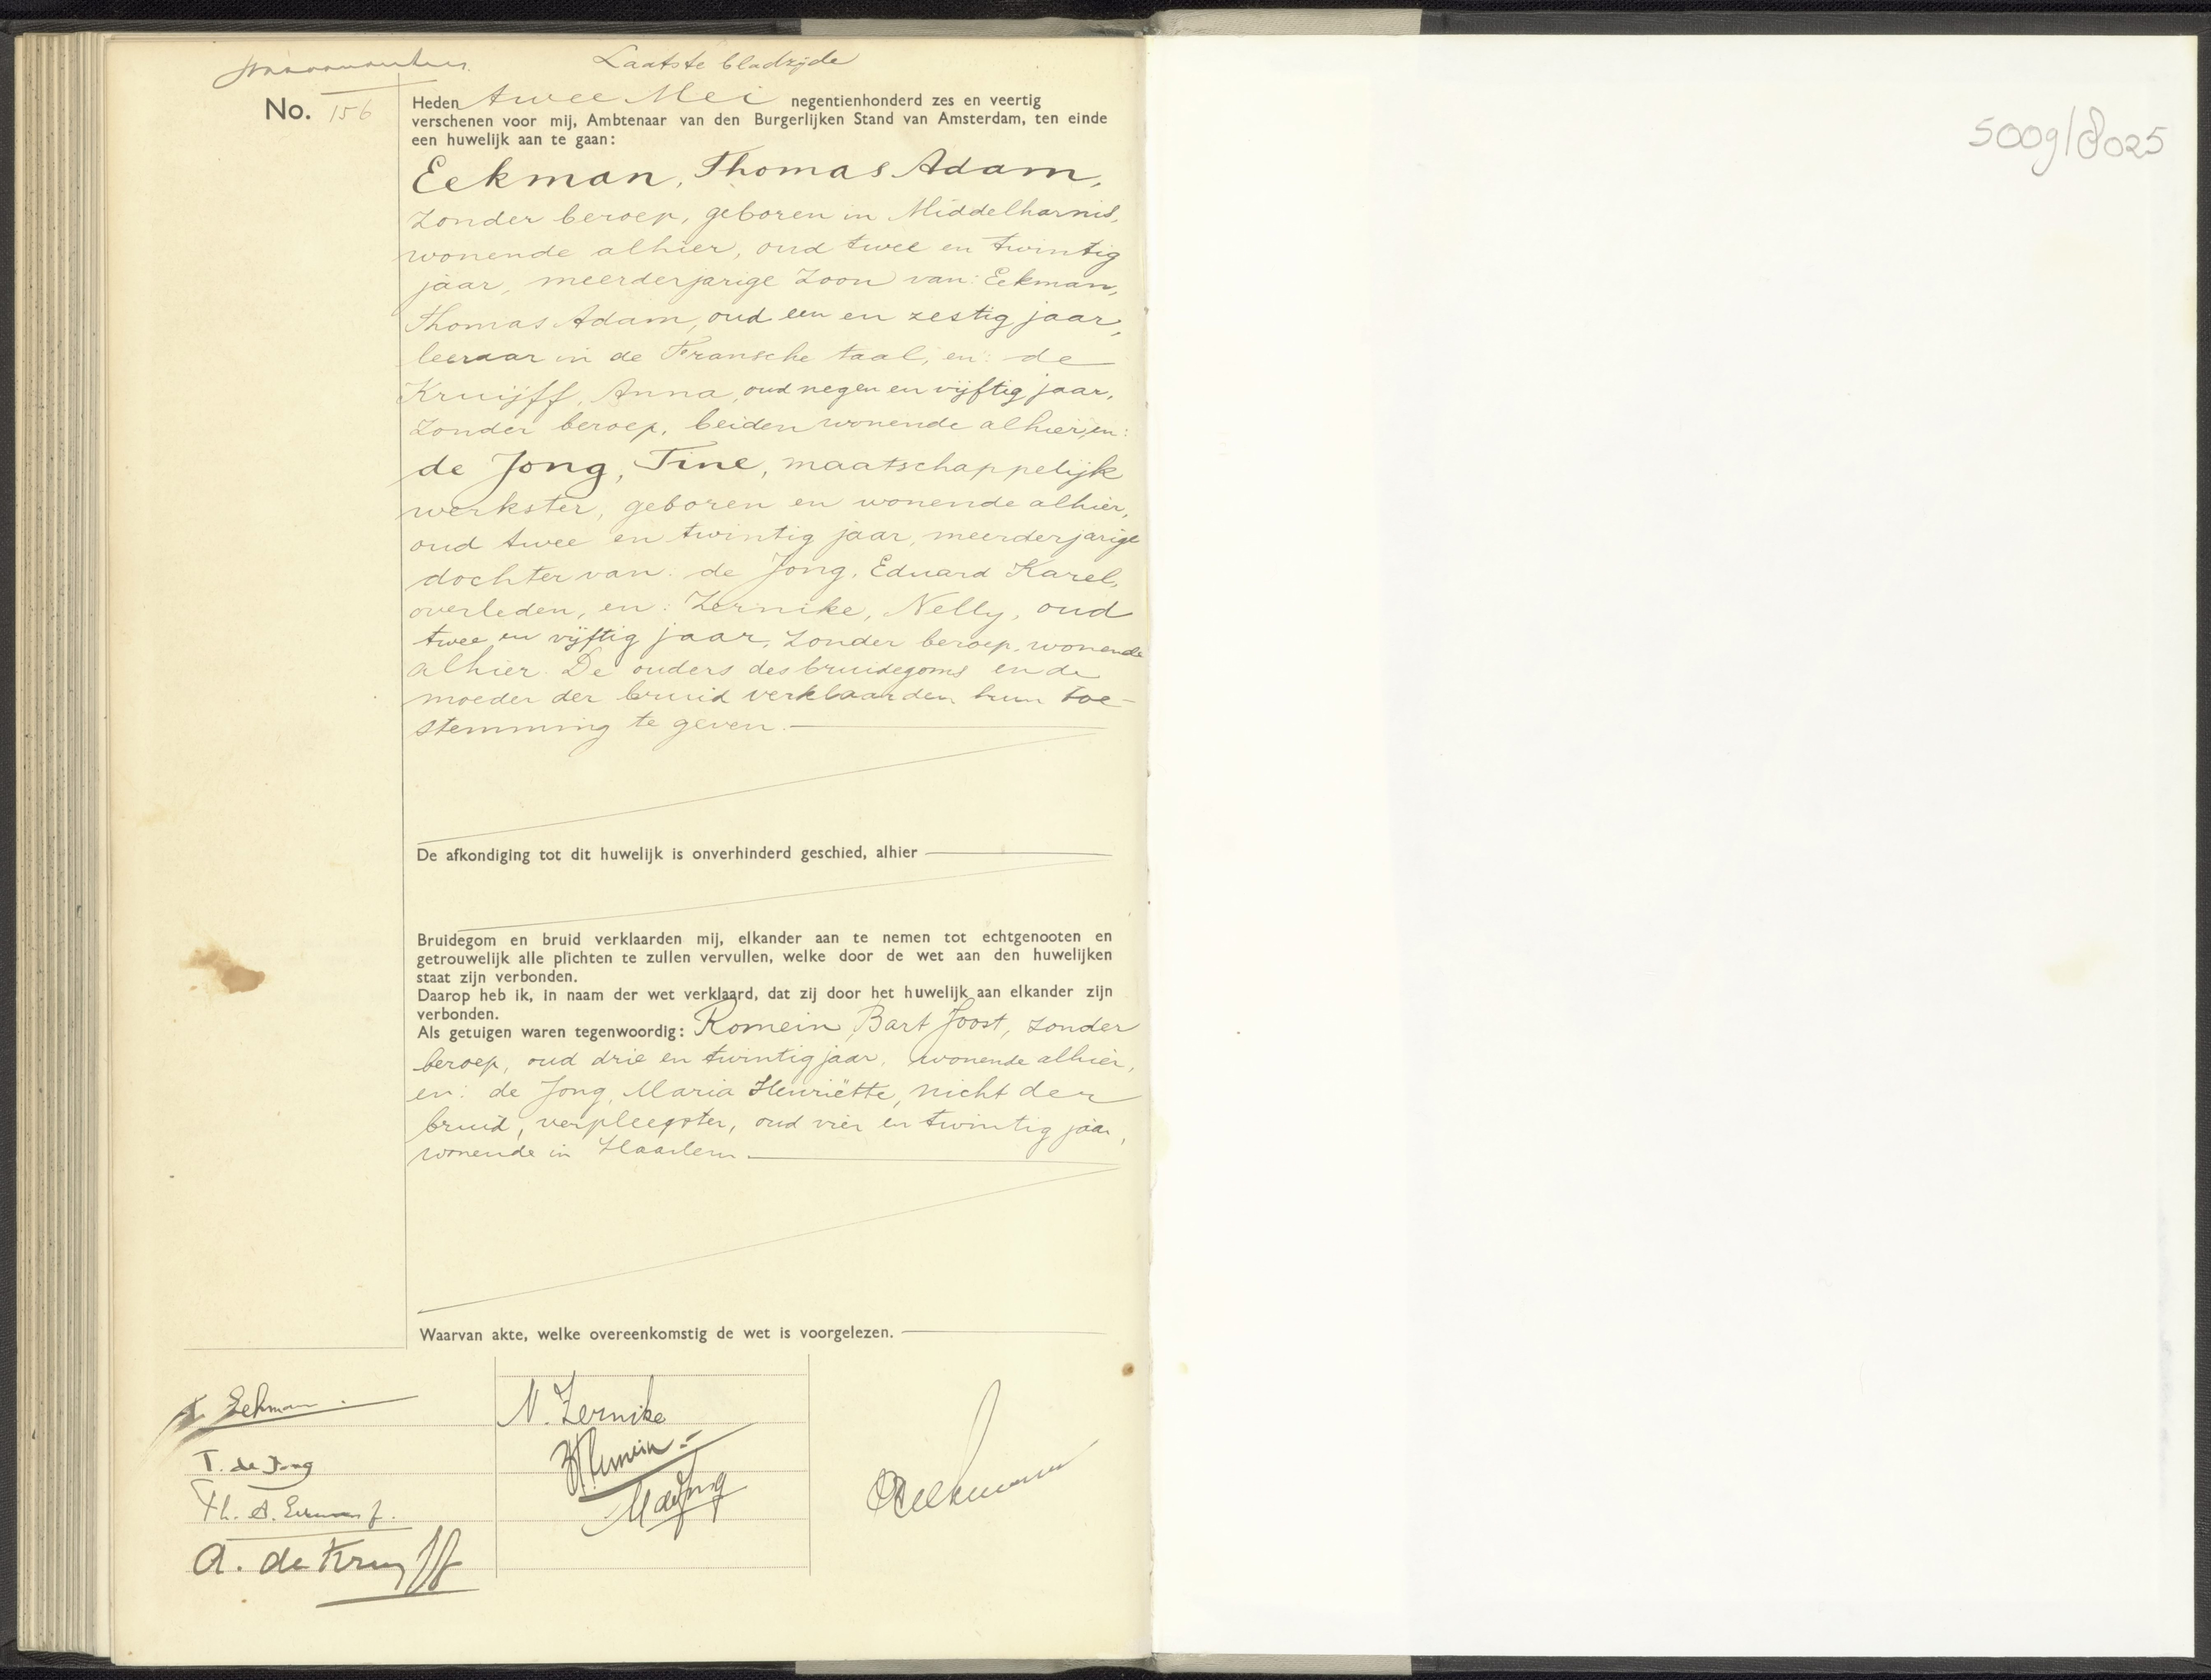 Laatste bladzijde
No. 156
Heden twee Mei negentienhonderd zes en veertig
verschenen voor mij, Ambtenaar van den Burgerlijken Stand van Amsterdam, ten einde
een huwelijk aan te gaan:
Eekman, Thomas Adam,
zonder beroep, geboren in Middelharnis,
wonende alhier, oud twee en twintig
jaar, meerderjarige zoon van: Eekman,
Thomas Adam, oud een en zestig jaar,
leeraar in de Fransche taal, en: de
Kruijff, Anna, oud negen en vijftig jaar,
zonder beroep, beiden wonende alhier, en:
de Jong, Tine, maatschappelijk
werkster, geboren en wonende alhier,
oud twee en twintig jaar, meerderjarige
dochter van: de Jong, Eduard Karel,
overleden, en: Zernike, Nelly, oud
twee en vijftig jaar, zonder beroep, wonende
alhier. De ouders des bruidegoms en de
moeder der bruid verklaarden hun toe-
stemming te geven.
De afkondiging tot dit huwelijk is onverhinderd geschied, alhier
Bruidegom en bruid verklaarden mij, elkander aan te nemen tot echtgenooten en
getrouwelijk alle plichten te zullen vervullen, welke door de wet aan den huwelijken
staat zijn verbonden.
Daarop heb ik, in naam der wet verklaard, dat zij door het huwelijk aan elkander zijn
verbonden.
Als getuigen waren tegenwoordig: Romein, Bart Joost, zonder
beroep, oud drie en twintig jaar, wonende alhier,
en: de Jong, Maria Henriëtte, nicht der
bruid, verpleegster, oud vier en twintig jaar,
wonende in Haarlem.
Waarvan akte, welke overeenkomstig de wet is voorgelezen.
T. Eekman.
T. de Jong
Th. A. Eekman
A. de Kruyff
N. Zernike
Romein
M de Jong
5009/8025